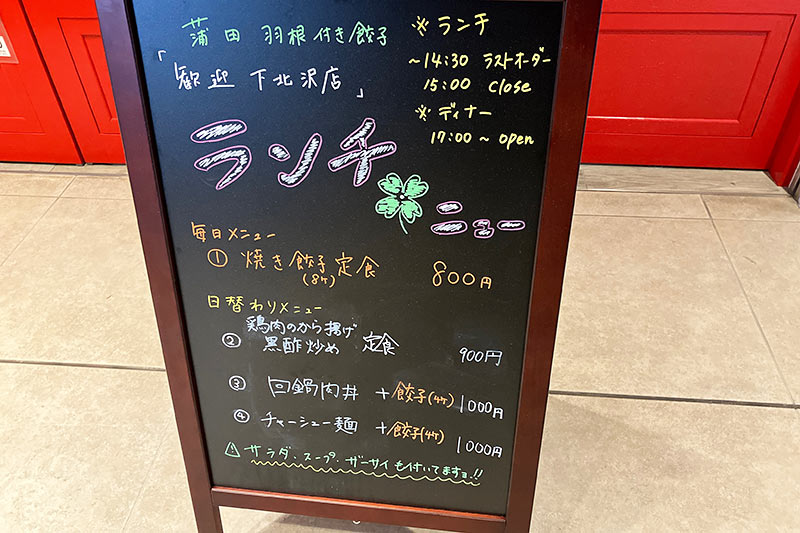 蒲田 羽根付き餃子
「歓迎 下北沢店」
※ランチ
~14:30 ラストオーダー
15:00 close
※ディナー
17:00~open
ランチ
メニュー
毎日メニュー
① 焼き餃子定食 800円
(8ケ)
日替わりメニュー
② 鶏肉のから揚げ
黒酢炒め 定食 900円
③ 回鍋肉丼 +餃子(4ケ) 1000円
④ チャーシュー麺 +餃子(4ケ) 1000円
⚠サラダ・スープ・ザーサイも付いてますョ!!